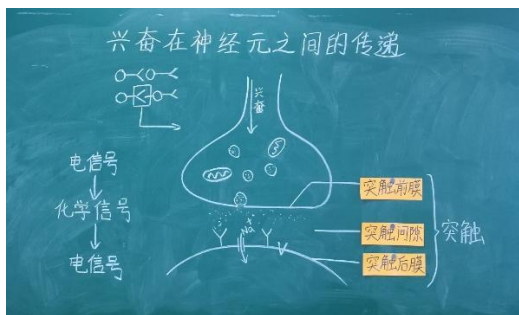 兴奋在神经元之间的传递
兴奋
电信号
化学信号
电信号
突触前膜
突触间隙
突触后膜
突触